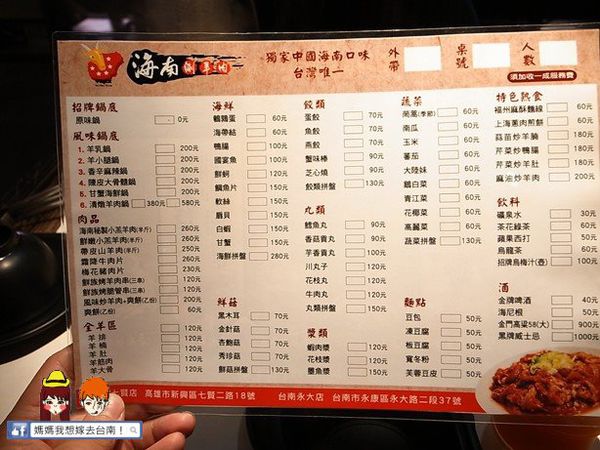 海南涮羊肉
獨家中國海南口味
台灣唯一
外帶
桌號
人數
須加收一成服務費
招牌鍋底
原味鍋 0元
風味鍋底
1. 羊乳鍋 200元
2. 羊小腿鍋 200元
3. 香辛麻辣鍋 200元
4. 陳皮大骨髓鍋 200元
5. 甘蟹海鮮鍋 200元
6. 清燉羊肉鍋 380元 580元
肉品
海南秘製小羔羊肉(半斤) 260元
鮮嫩小羔羊肉(半斤) 260元
帶皮山羊肉(半斤) 260元
霜降牛肉片 260元
梅花豬肉片 230元
鮮族烤羊肉串(三串)
鮮族烤脆管串(三串)
風味炒羊肉+爽餅(乙份) 200元
爽餅(乙份) 60元
全羊區
羊排
羊腩
羊肚
羊筋肉
羊大骨
海鮮
鵪鶉蛋 60元
海帶結 60元
鴨腸 100元
國宴魚 100元
鮮蚵 120元
鯛魚片 150元
軟絲 150元
扇貝 150元
白蝦 150元
甘蟹 150元
海鮮拼盤 280元
鮮菇
黑木耳 70元
金針菇 70元
杏鮑菇 70元
秀珍菇 70元
鮮菇拼盤 130元
餃類
蛋餃 70元
魚餃 70元
燕餃 70元
蟹味棒 90元
芝心燒 90元
餃類拼盤 130元
丸類
鱈魚丸 90元
香菇貢丸 90元
芋香貢丸 100元
川丸子 120元
花枝丸 120元
牛肉丸 120元
丸類拼盤 130元
漿類
蝦肉漿 120元
花枝漿 120元
墨魚漿 150元
蔬菜
尚蒿(季節) 60元
南瓜 60元
玉米 60元
蕃茄 60元
大陸妹 60元
鵝白菜 60元
青江菜 60元
花椰菜 60元
高麗菜 60元
蔬菜拼盤 130元
麵點
豆包 50元
凍豆腐 50元
板豆腐 50元
寬冬粉 50元
芙蓉豆皮 50元
特色熟食
福州麻酥麵線 100元
上海蔥肉煎餅 100元
蒜苗炒羊腩 180元
芹菜炒鴨腸 180元
芹菜炒羊肚 180元
麻油炒羊肉 200元
飲料
礦泉水 30元
茶花綠茶 60元
蘋果西打 50元
烏龍茶 60元
招牌烏梅汁(壺) 100元
酒
金牌啤酒 40元
海尼根 50元
金門高粱58(大) 900元
黑牌威士忌 1000元
七賢店 高雄市新興區七賢二路18號
台南永大店 台南市永康區永大路二段37號
媽媽我想嫁去台南!